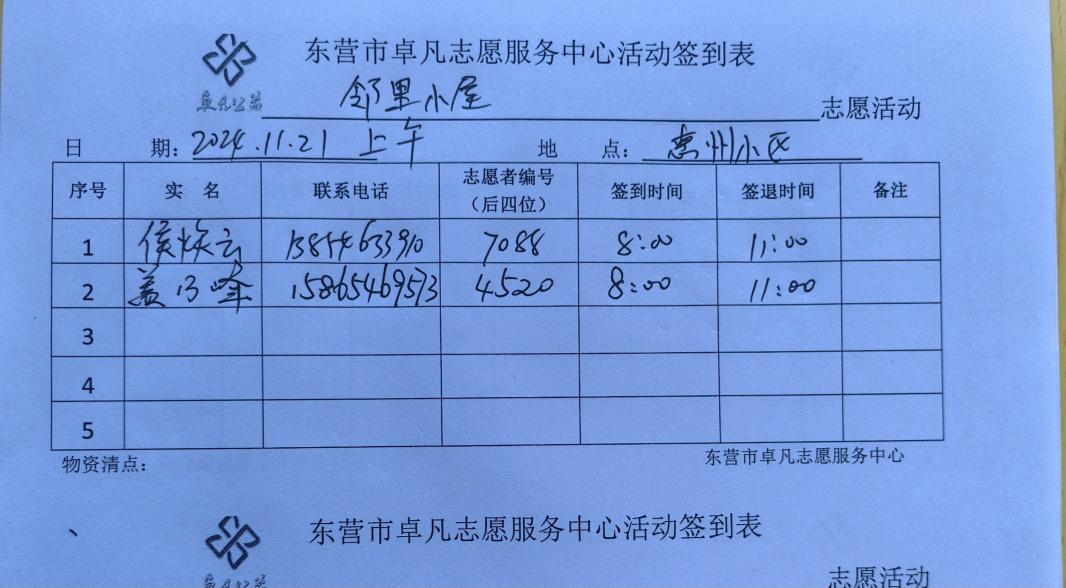 东营市卓凡志愿服务中心活动签到表
卓凡公益 邻里小屋 志愿活动
日 期: 2024.11.21 上午 地 点: 惠州小区
序号 实 名 联系电话 志愿者编号（后四位） 签到时间 签退时间 备注
1 侯焕云 13854633910 7088 8:00 11:00
2 盖乃峰 15865469573 4520 8:00 11:00
3
4
5
物资清点: 东营市卓凡志愿服务中心
东营市卓凡志愿服务中心活动签到表
卓凡公益 志愿活动